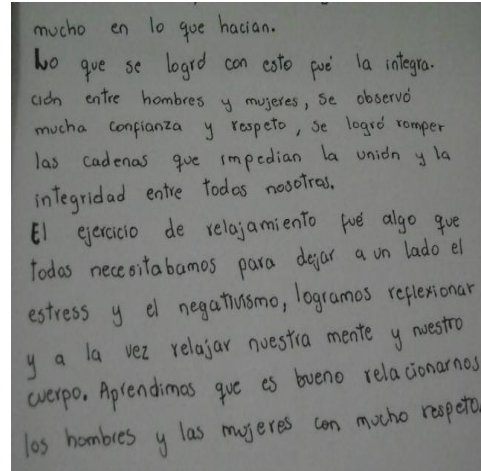 mucho en lo que hacian.
Lo que se logró con esto fué la integra-
ción entre hombres y mujeres, se observó
mucha confianza y respeto, se logró romper
las cadenas que impedian la unión y la
integridad entre todos nosotros.
El ejercicio de relajamiento fué algo que
todos necesitabamos para dejar a un lado el
estress y el negativismo, logramos reflexionar
y a la vez relajar nuestra mente y nuestro
cuerpo. Aprendimos que es bueno relacionarnos
los hombres y las mujeres con mucho respeto.